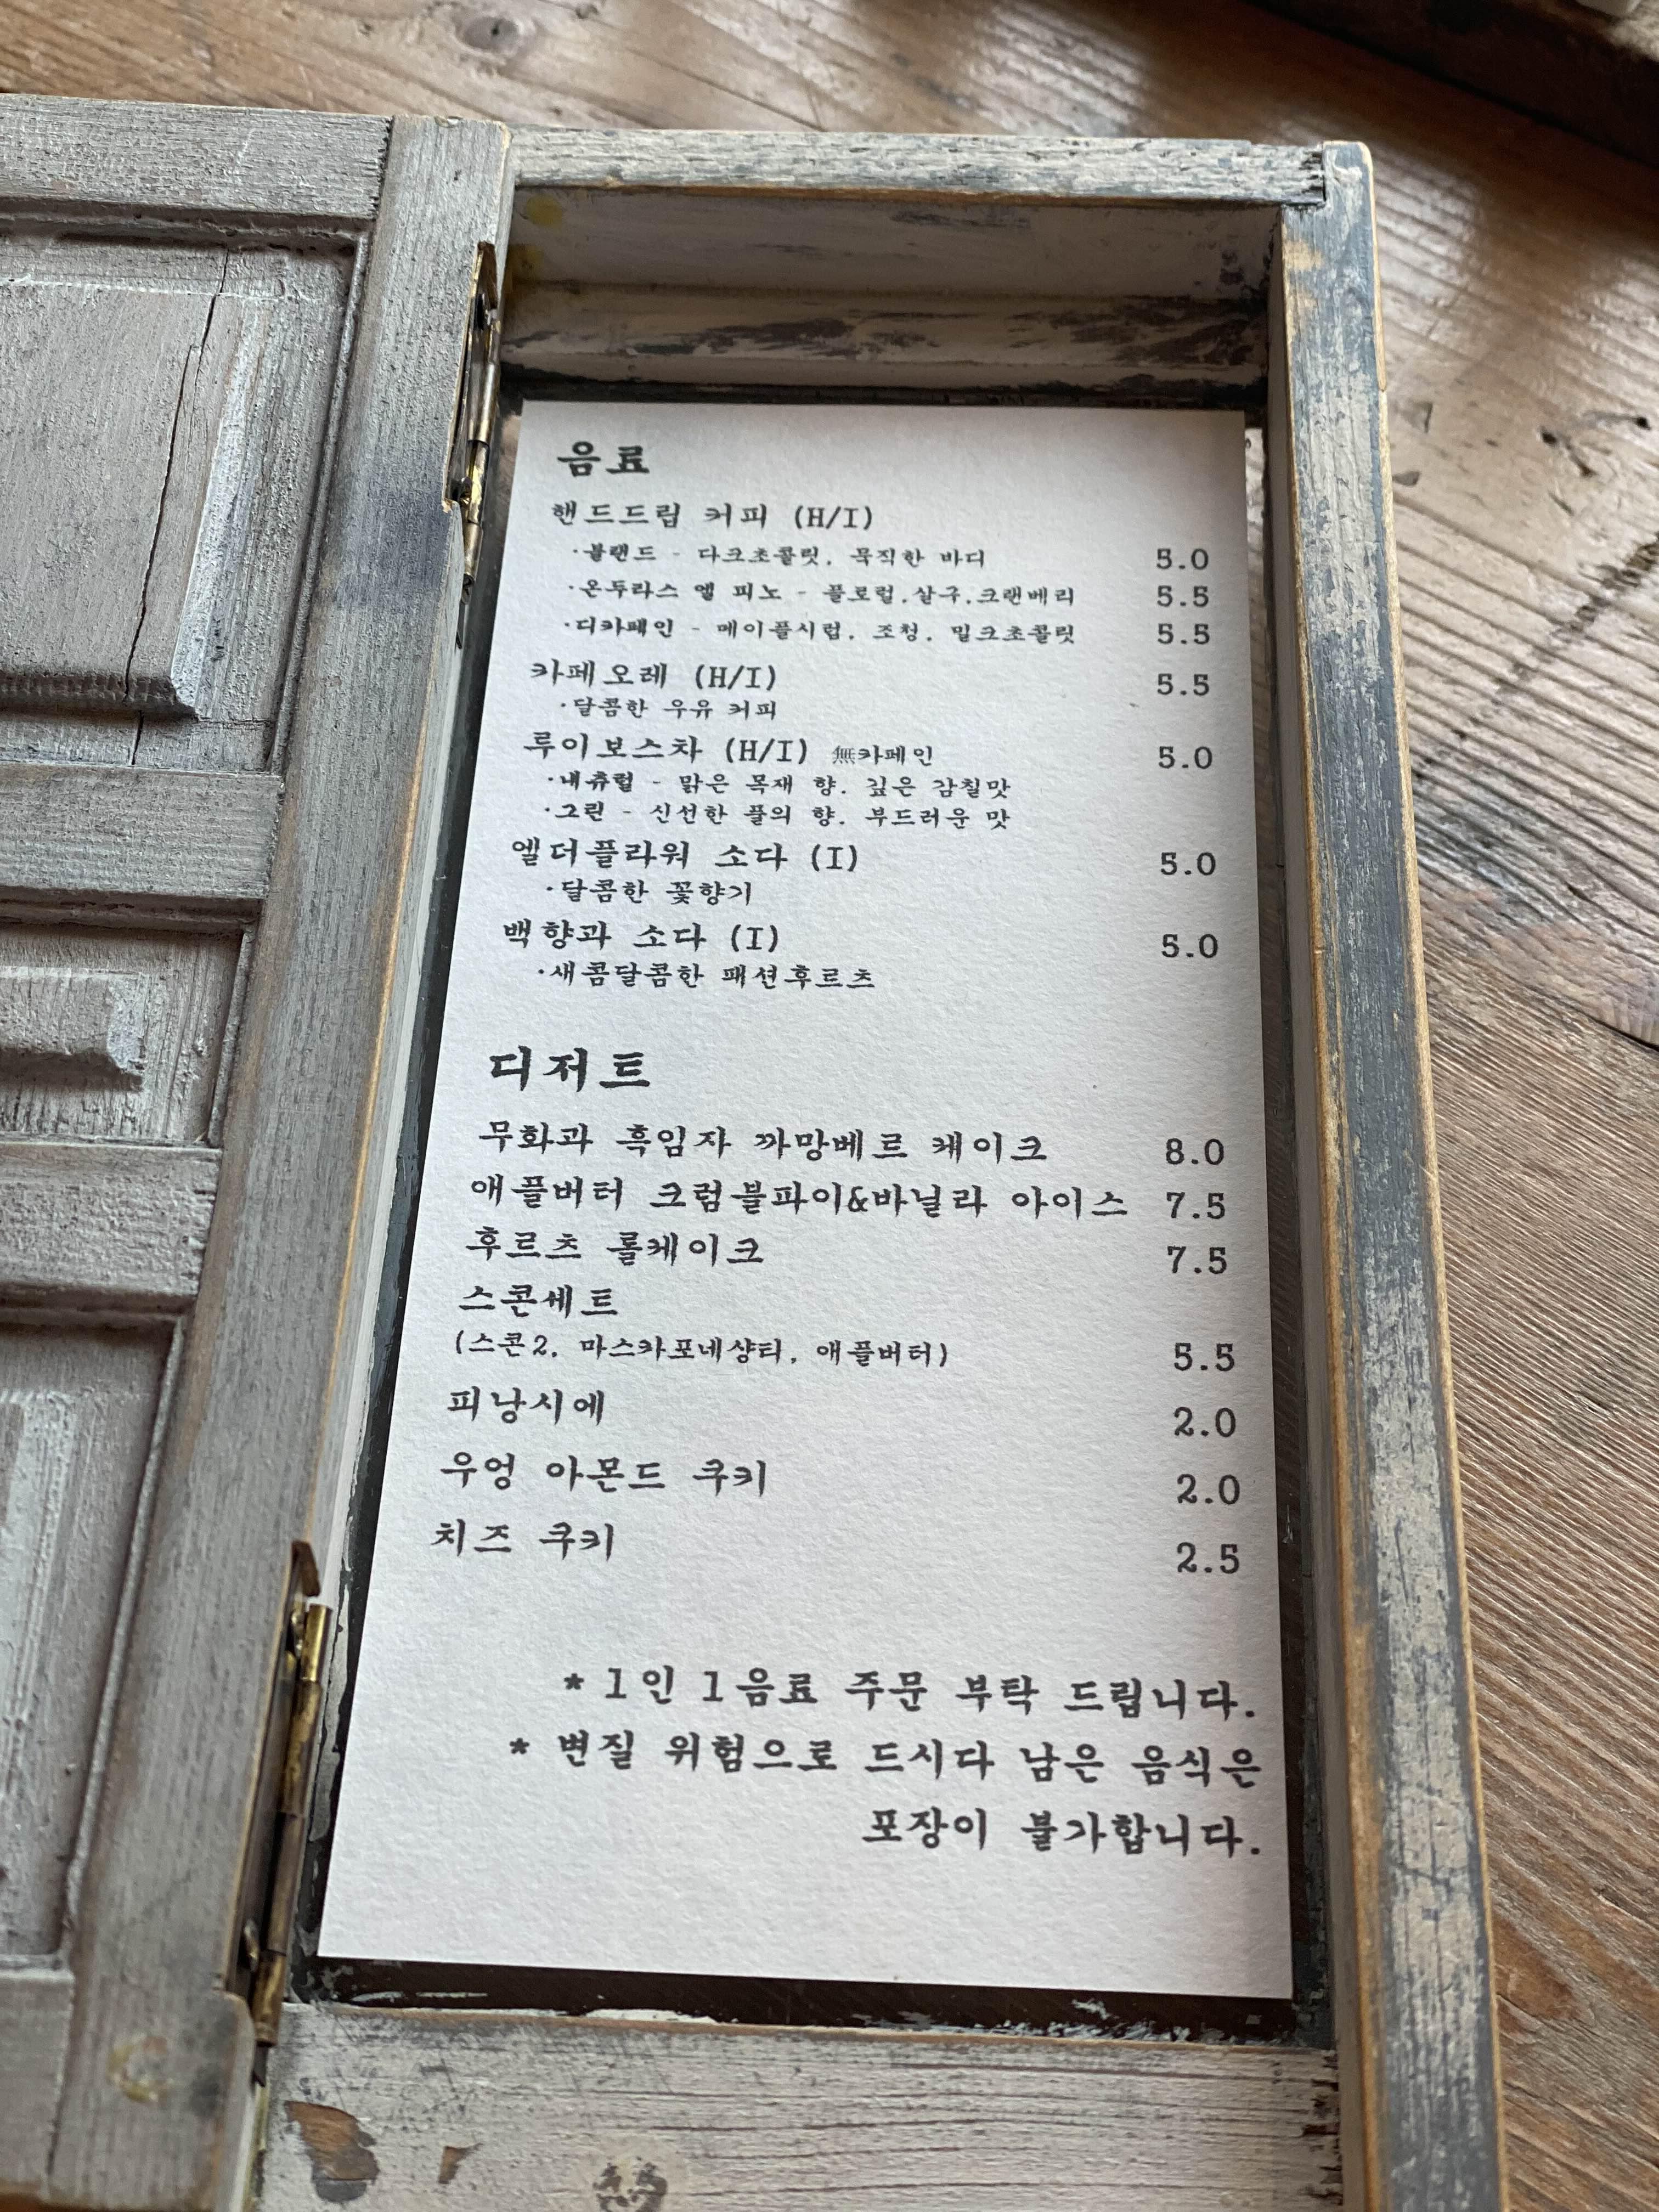 음료
핸드드립 커피 (H/I)
·블랜드 - 다크초콜릿, 묵직한 바디 5.0
·온두라스 엘 피노 - 플로럴,살구,크랜베리 5.5
·디카페인 - 메이플시럽, 조청, 밀크초콜릿 5.5
카페오레 (H/I) 5.5
·달콤한 우유 커피
루이보스차 (H/I) 無카페인 5.0
·내츄럴 - 맑은 목재 향. 깊은 감칠맛
·그린 - 신선한 풀의 향. 부드러운 맛
엘더플라워 소다 (I) 5.0
·달콤한 꽃향기
백향과 소다 (I) 5.0
·새콤달콤한 패션후르츠
디저트
무화과 흑임자 까망베르 케이크 8.0
애플버터 크럼블파이&바닐라 아이스 7.5
후르츠 롤케이크 7.5
스콘세트
(스콘2, 마스카포네샹티, 애플버터) 5.5
피낭시에 2.0
우엉 아몬드 쿠키 2.0
치즈 쿠키 2.5
* 1인 1음료 주문 부탁 드립니다.
* 변질 위험으로 드시다 남은 음식은
포장이 불가합니다.